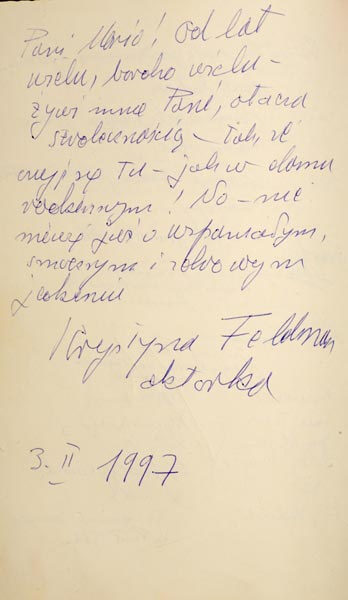 Pani Mario! Od lat
wielu, bardzo wielu –
żywi mnie Pani, otacza
serdecznością – tak, że
czuję się tu – jak w domu
rodzinnym! No – nie
mówię już o wspaniałym,
smacznym i zdrowym
jedzeniu
Krystyna Feldman
aktorka
3. II 1997